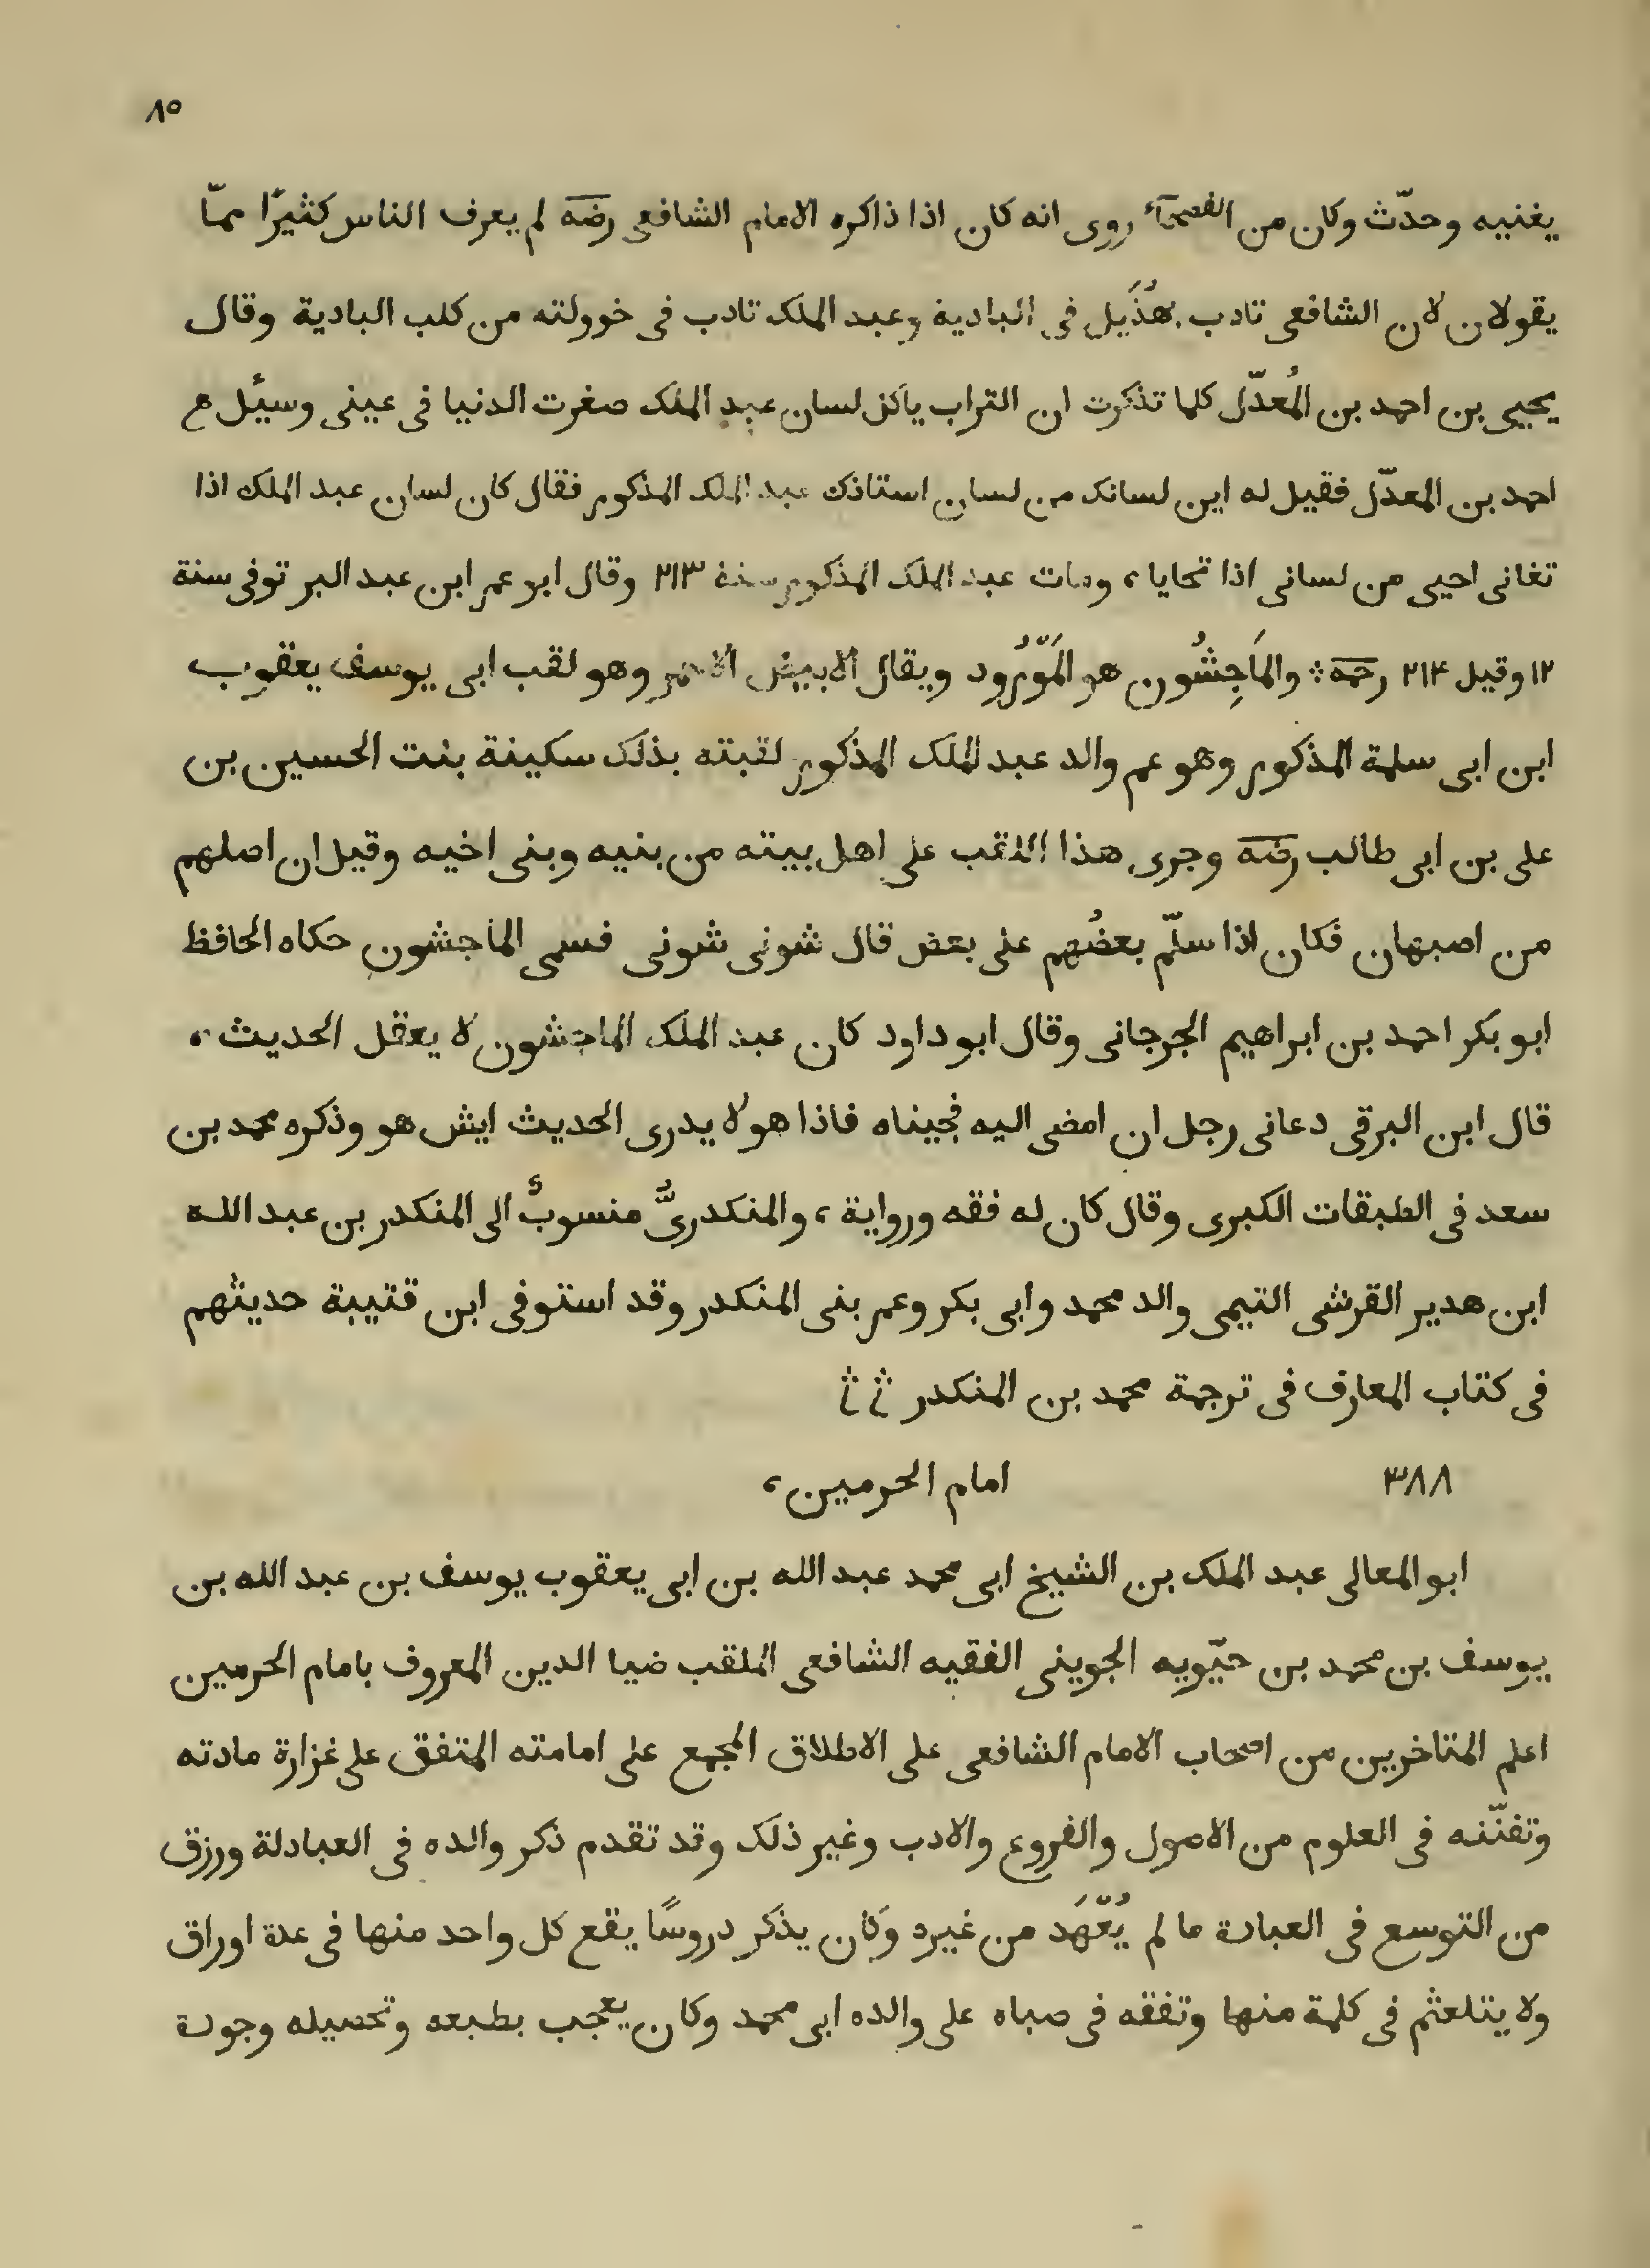 ٨٥
يغنيه وحدّث وكان من الفصحآء روى انه كان اذا ذاكره الامام الشافعى رضه لم يعرف الناس كثيرًا ممّا
يقولان لان الشافعى تادب بهُذَيل فى البادية وعبد الملك تادب فى خوولته من كلب البادية وقال
يحيى بن احمد بن المُعدّل كلما تذكرت ان التراب ياكل لسان عبد الملك صغرت الدنيا فى عينى وسيُل
احمد بن المعدّل فقيل له اين لسانك من لسان استاذك عبد الملك المذكور فقال كان لسان عبد الملك اذا
تغانى احيى من لسانى اذا تحايا، ومات عبد الملك المذكور سنة ٢١٣ وقال ابو عمر ابن عبد البر توفى سنة
١٢ وقيل ٢١٤ رحمه ؞ والمَاجِشُون هو المَوّرُود ويقال الابيض الاحمر وهو لقب ابى يوسف يعقوب
ابن ابى سلمة المذكور وهو عم والد عبد الملك المذكور لقبته بذلك سكينة بنت الحسين بن
على بن ابى طالب رضه وجرى هذا اللقب على اهل بيته من بنيه وبنى اخيه وقيل ان اصلهم
من اصبهان فكان اذا سلّم بعضُهم على بعض قال شونى شونى فسمى الماجشون حكاه الحافظ
ابو بكر احمد بن ابراهيم الجرجانى وقال ابو داود كان عبد الملك الماجشون لا يعقل الحديث،
قال ابن البرقى دعانى رجل ان امضى اليه فجيناه فاذا هو لا يدرى الحديث ايش هو وذكره محمد بن
سعد فى الطبقات الكبرى وقال كان له فقه ورواية، والمنكدرىُّ منسوبٌ الى المنكدر بن عبد الله
ابن هدير القرشى التيمى والد محمد وابى بكر وعمر بنى المنكدر وقد استوفى ابن قتيبة حديثهم
فى كتاب المعارف فى ترجمة محمد بن المنكدر
٣٨٨ امام الحرمين،
ابو المعالى عبد الملك بن الشيخ ابى محمد عبد الله بن ابى يعقوب يوسف بن عبد الله بن
يوسف بن محمد بن حيّويه الجوينى الفقيه الشافعى الملقب ضيا الدين المعروف بامام الحرمين
اعلم المتاخرين من اصحاب الامام الشافعى على الاطلاق المجمع على امامته المتفق على غزارة مادته
وتفنّنه فى العلوم من الاصول والفروع والادب وغير ذلك وقد تقدم ذكر والده فى العبادلة ورزق
من التوسع فى العبادة ما لم يُعّهَد من غيره وكان يذكر دروسًا يقع كل واحد منها فى عدة اوراق
ولا يتلعثم فى كلمة منها وتفقه فى صباه على والده ابى محمد وكان يعجب بطبعه وتحصيله وجودة